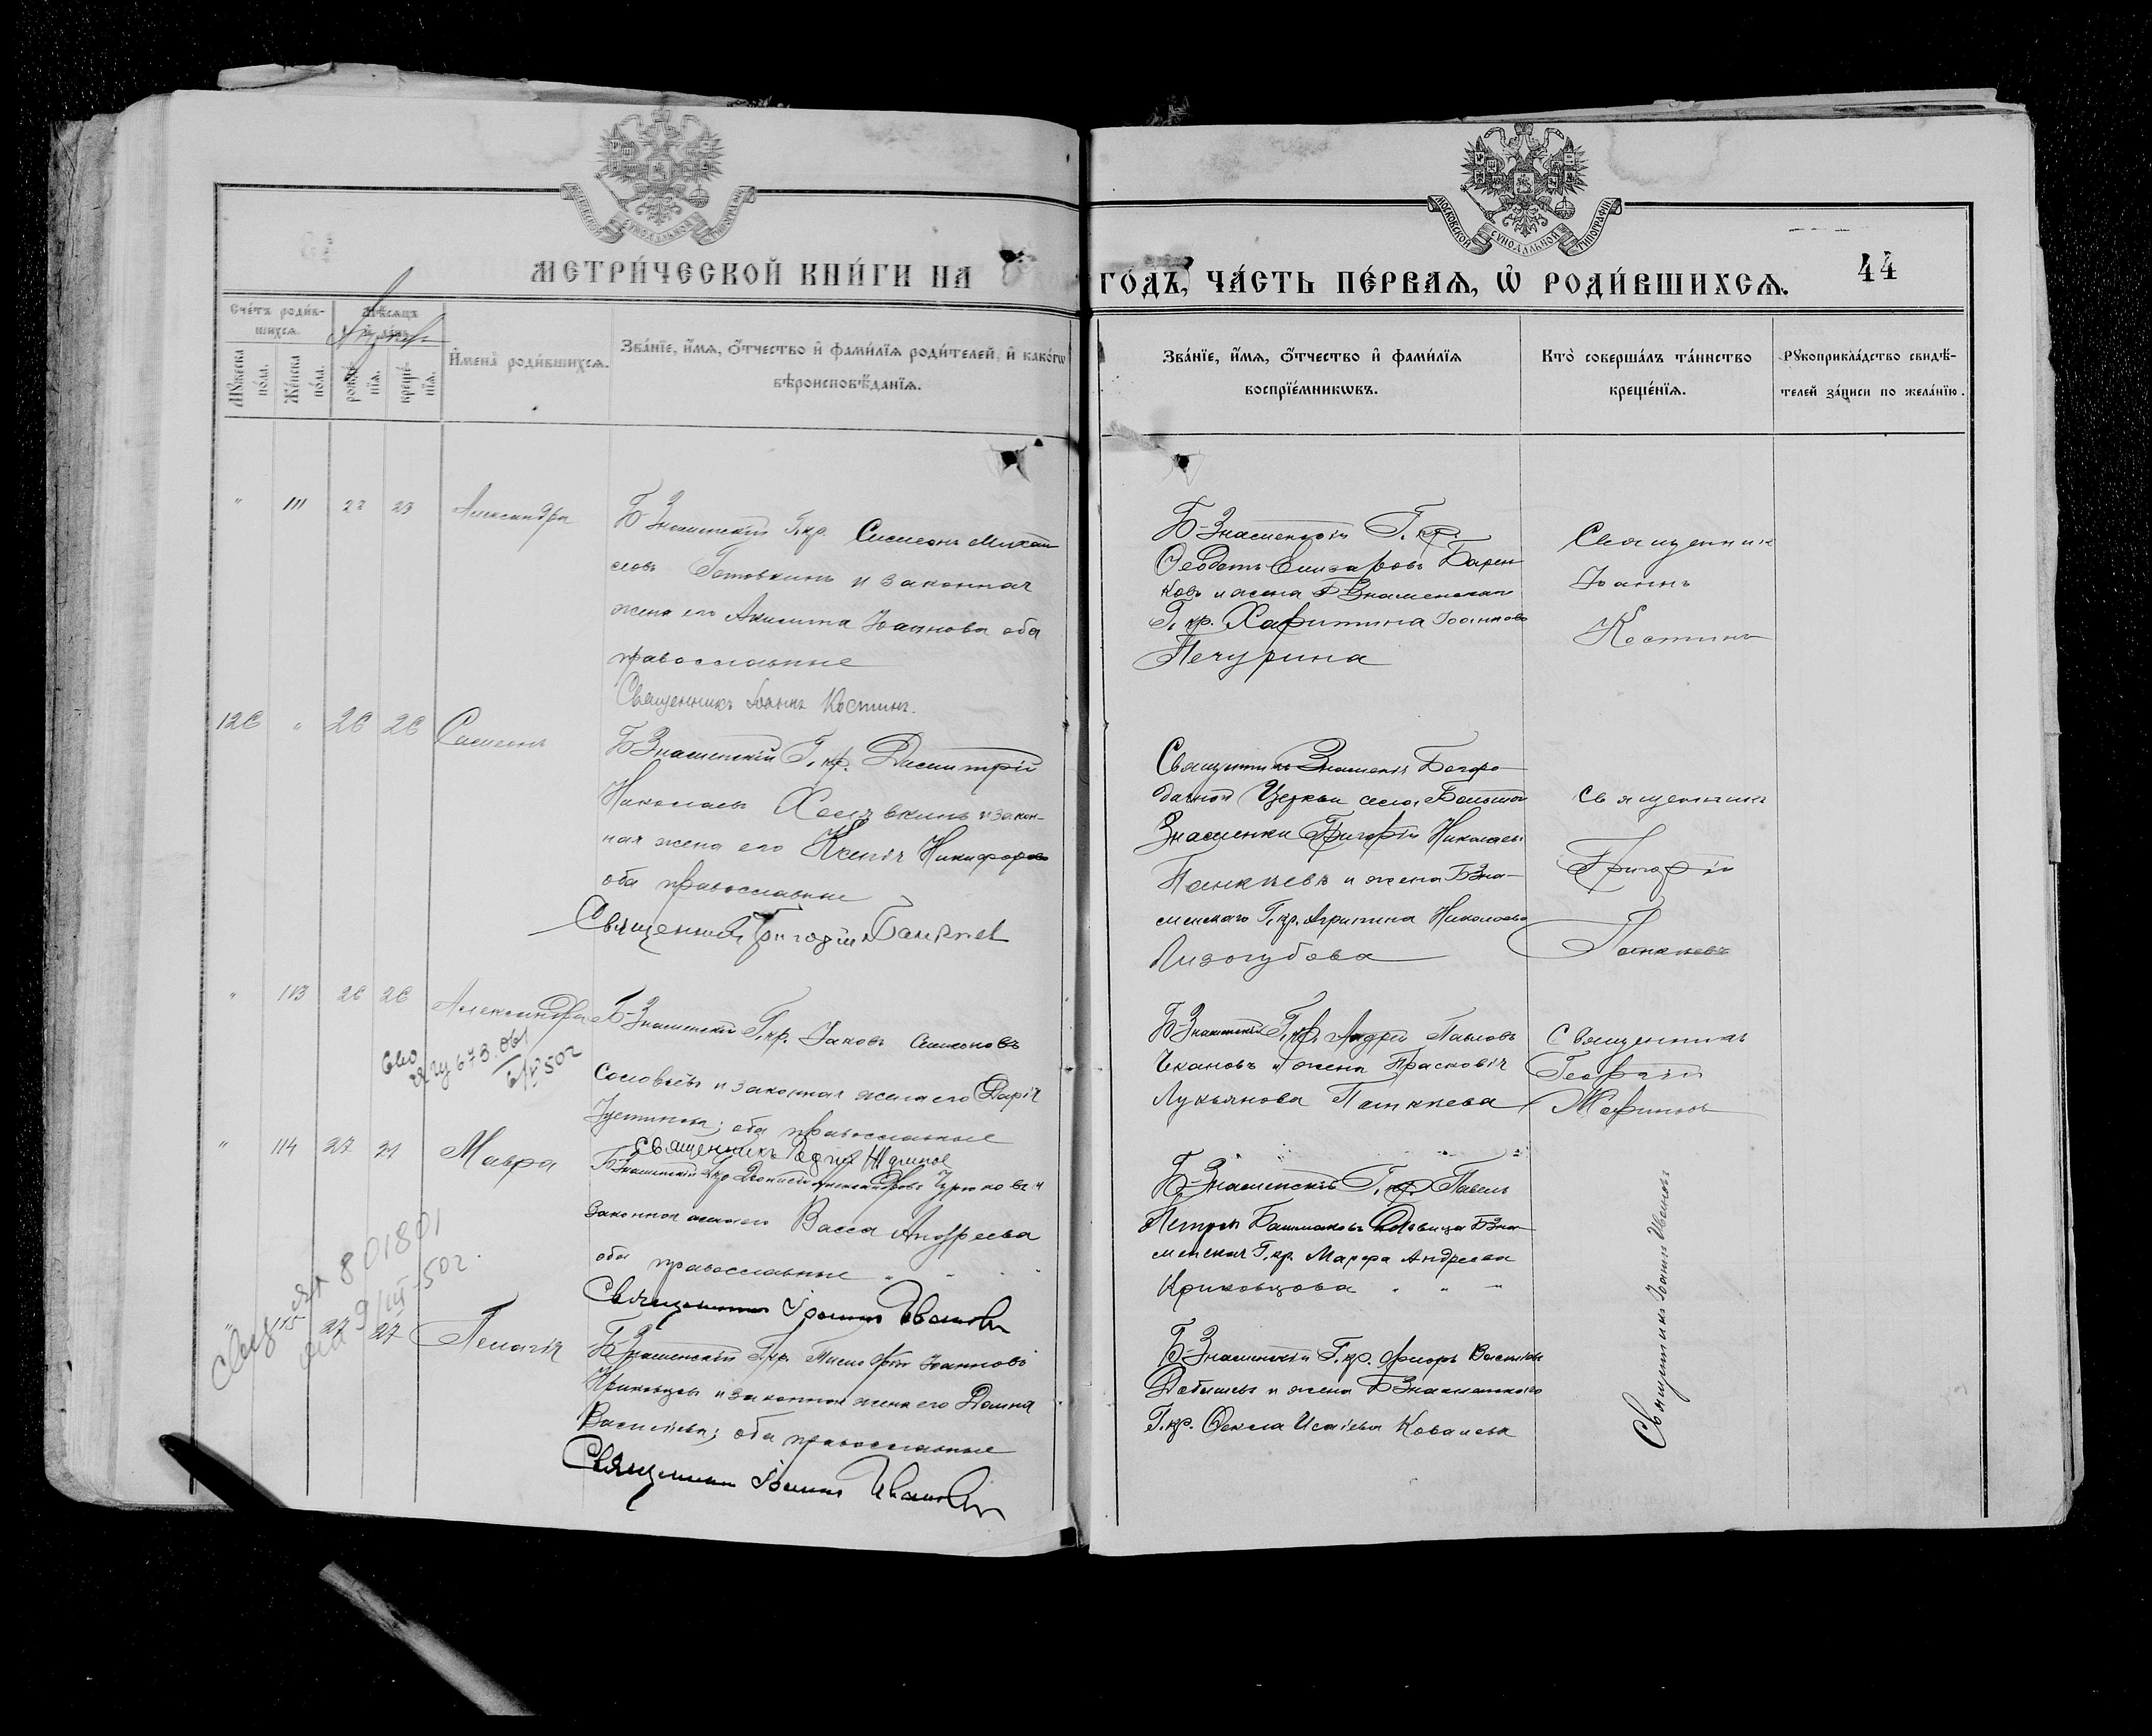 МОСКОВСКОЙ СѴНОДАЛЬНОЙ ТИПОГРАФІИ
МОСКОВСКОЙ СѴНОДАЛЬНОЙ ТИПОГРАФІИ
МЕТРИ́ЧЕСКОЙ КНИ́ГИ НА
ГО́ДЪ, ЧА́СТЬ ПЕ́РВАѦ, Ѡ҆ РОДИ́ВШИХСѦ.
44
Сче́тъ роди́в-
шихсѧ.
Мѣ́сѧцъ
и҆ де́нь
Мꙋ́жеска по́ла.
Же́нска по́ла.
рожде́-
нїѧ.
креще́-
нїѧ.
И҆мена̀ роди́вшихсѧ.
Зва́нїе, и҆́мѧ, ѻ҆́тчество и҆ фами́лїѧ роди́телей, и҆ како́гѡ
вѣроисповѣ́данїѧ.
Зва́нїе, и҆́мѧ, ѻ҆́тчество и҆ фами́лїѧ
воспрїе́мникѡвъ.
Кто̀ соверша́лъ та́инство
креще́нїѧ.
Рꙋкоприкла́дство свидѣ́-
телей за́писи по жела́нїю.
" 111 22 23 Александра
Б Знаменскій Г. кр. Симеонъ Михаи
ловъ Готовкинъ и законная
жена его Акилина Іоаннова оба
православные
Священникъ Іоаннъ Костинъ.
Б-Знаменскій Г. кр.
Ѳеодотъ Елизаровъ Барен
ковъ и жена БЗнаменскаго
Г. кр. Харитина Іоаннова
Печурина
Священник
Іоаннъ
Костинъ
126 " 26 26 Симеонъ
БЗнаменскій Г. кр. Димитрій
Николаевъ и закон-
ная жена его Ксенія Никифорова
оба православные
Священникъ Григорій Панкеев
Священникъ Знаменія Богоро
дичной Церкви села Большой
Знаменки Григорій Николаевъ
Панкеевъ и жена БЗна-
менскаго Г. кр. Агрипина Николаева
Лизогубова
Священникъ
Григорій
Панкеевъ
" 113 26 26 Александра
Б-Знаменскій Г. кр. Іаковъ Симеоновъ
Соловьёвъ и законная жена его Дарія
Іустинова; оба православные
Священникъ
БЗнаменскій Г. кр. Андрей Павловъ
Чкановъ и жена Прасковія
Лукьянова Панкеева
Священникъ
Георгій
" 114 27 Мавра
БЗнаменскій Г. кр. Діонисій Александровъ и
законная жена его Васса Андреева
оба православные " " "
Священникъ Іоаннъ Ивановъ
Б-Знаменскій Г. кр. Павелъ
Петровъ Башмаковъ Дѣвица БЗна
менская Г. кр. Марфа Андреева
Криковцова " " "
801801
9/III-50г.
" 115 27 27 Пелагія
Б-Знаменскій Г. кр. Іоанновъ
Криковцовъ и законная жена его Домна
Василіева; оба православные
Священникъ Іоаннъ Ивановъ
Б-Знаменскій Г. кр. Флоръ Василіевъ
и жена БЗнаменскаго
Г. кр. Ѳекла Исаіева Ковалева
Священникъ Іоаннъ Ивановъ